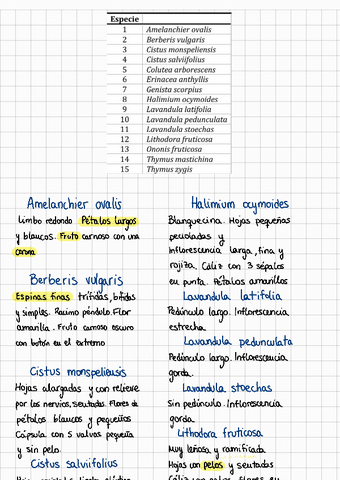 Especie
1 Amelanchier ovalis
2 Berberis vulgaris
3 Cistus monspeliensis
4 Cistus salviifolius
5 Colutea arborescens
6 Erinacea anthyllis
7 Genista scorpius
8 Halimium ocymoides
9 Lavandula latifolia
10 Lavandula pedunculata
11 Lavandula stoechas
12 Lithodora fruticosa
13 Ononis fruticosa
14 Thymus mastichina
15 Thymus zygis
Amelanchier ovalis
Limbo redondo Pétalos largos
y blancos. Fruto carnoso con una
corona
Berberis vulgaris
Espinas finas trífidas, bífidas
y simples. Racimo péndulo. Flor
amarilla. Fruto carnoso oscuro
con botón en el extremo
Cistus monspeliensis
Hojas alargadas y con relieve
por los nervios, sentadas. Flores de
pétalos blancos y pequeños
Cápsula con 5 valvas pequeña
y sin pelo
Cistus salviifolius
Halimium ocymoides
Blanquecina. Hojas pequeñas
pecioladas y
inflorescencia larga, fina y
rojiza. Cáliz con 3 sépalos
en punta. Pétalos amarillos
Lavandula latifolia
Pedúnculo largo. Inflorescencia
estrecha
Lavandula pedunculata
Pedúnculo largo. Inflorescencia
gorda.
Lavandula stoechas
Sin pedúnculo. Inflorescencia
gorda
Lithodora fruticosa
Muy leñosa y ramificada
Hojas con pelos y sentadas